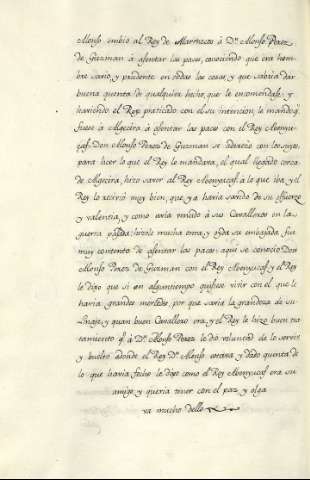 Alonso embio al Rey de Marruecos à Dn. Alonso Perez
de Guzman à asentar las paces, conociendo que era hom-
bre savio y prudente en todas las cosas, y que sabria dar
buena quenta de qualquier hecho, que le encomendase, y
haviendo el Rey praticado con el su intencion, le mandò q.
fuese à Algecira à asentar las paces con el Rey Abenyu-
çaf. Don Alonso Perez de Guzman se adereçò con los suyos,
para hacer lo que el Rey le mandava, el qual llegando cerca
de Algecira, hizo saver al Rey Abenyucaf à lo que iba, y el
Rey lo recivió muy bien, que ya havia savido de su esfuerzo
y valentia, y como avia vencido à sus Cavalleros en la
guerra pasada, hizole mucha onra, y oyda su embajada fue
muy contento de asentar las paces: aqui se conocio Don
Alonso Perez de Guzman con el Rey Abenyucaf, y el Rey
le dijo que si en algun tiempo quisiese vivir con el que le
haria grandes mercedes, por que savia la grandeza de su
Linaje, y quan buen Cavallero era, y el Rey le hizo buen tra
tamiento q. à Dn. Alonso Perez le diò voluntad de lo servir,
y buelto adonde el Rey Dn. Alonso estava, y dado quenta de
lo que havia fecho le dijo como el Rey Abenyucaf era su
amigo, y queria tener con el paz, y olga
va mucho dello